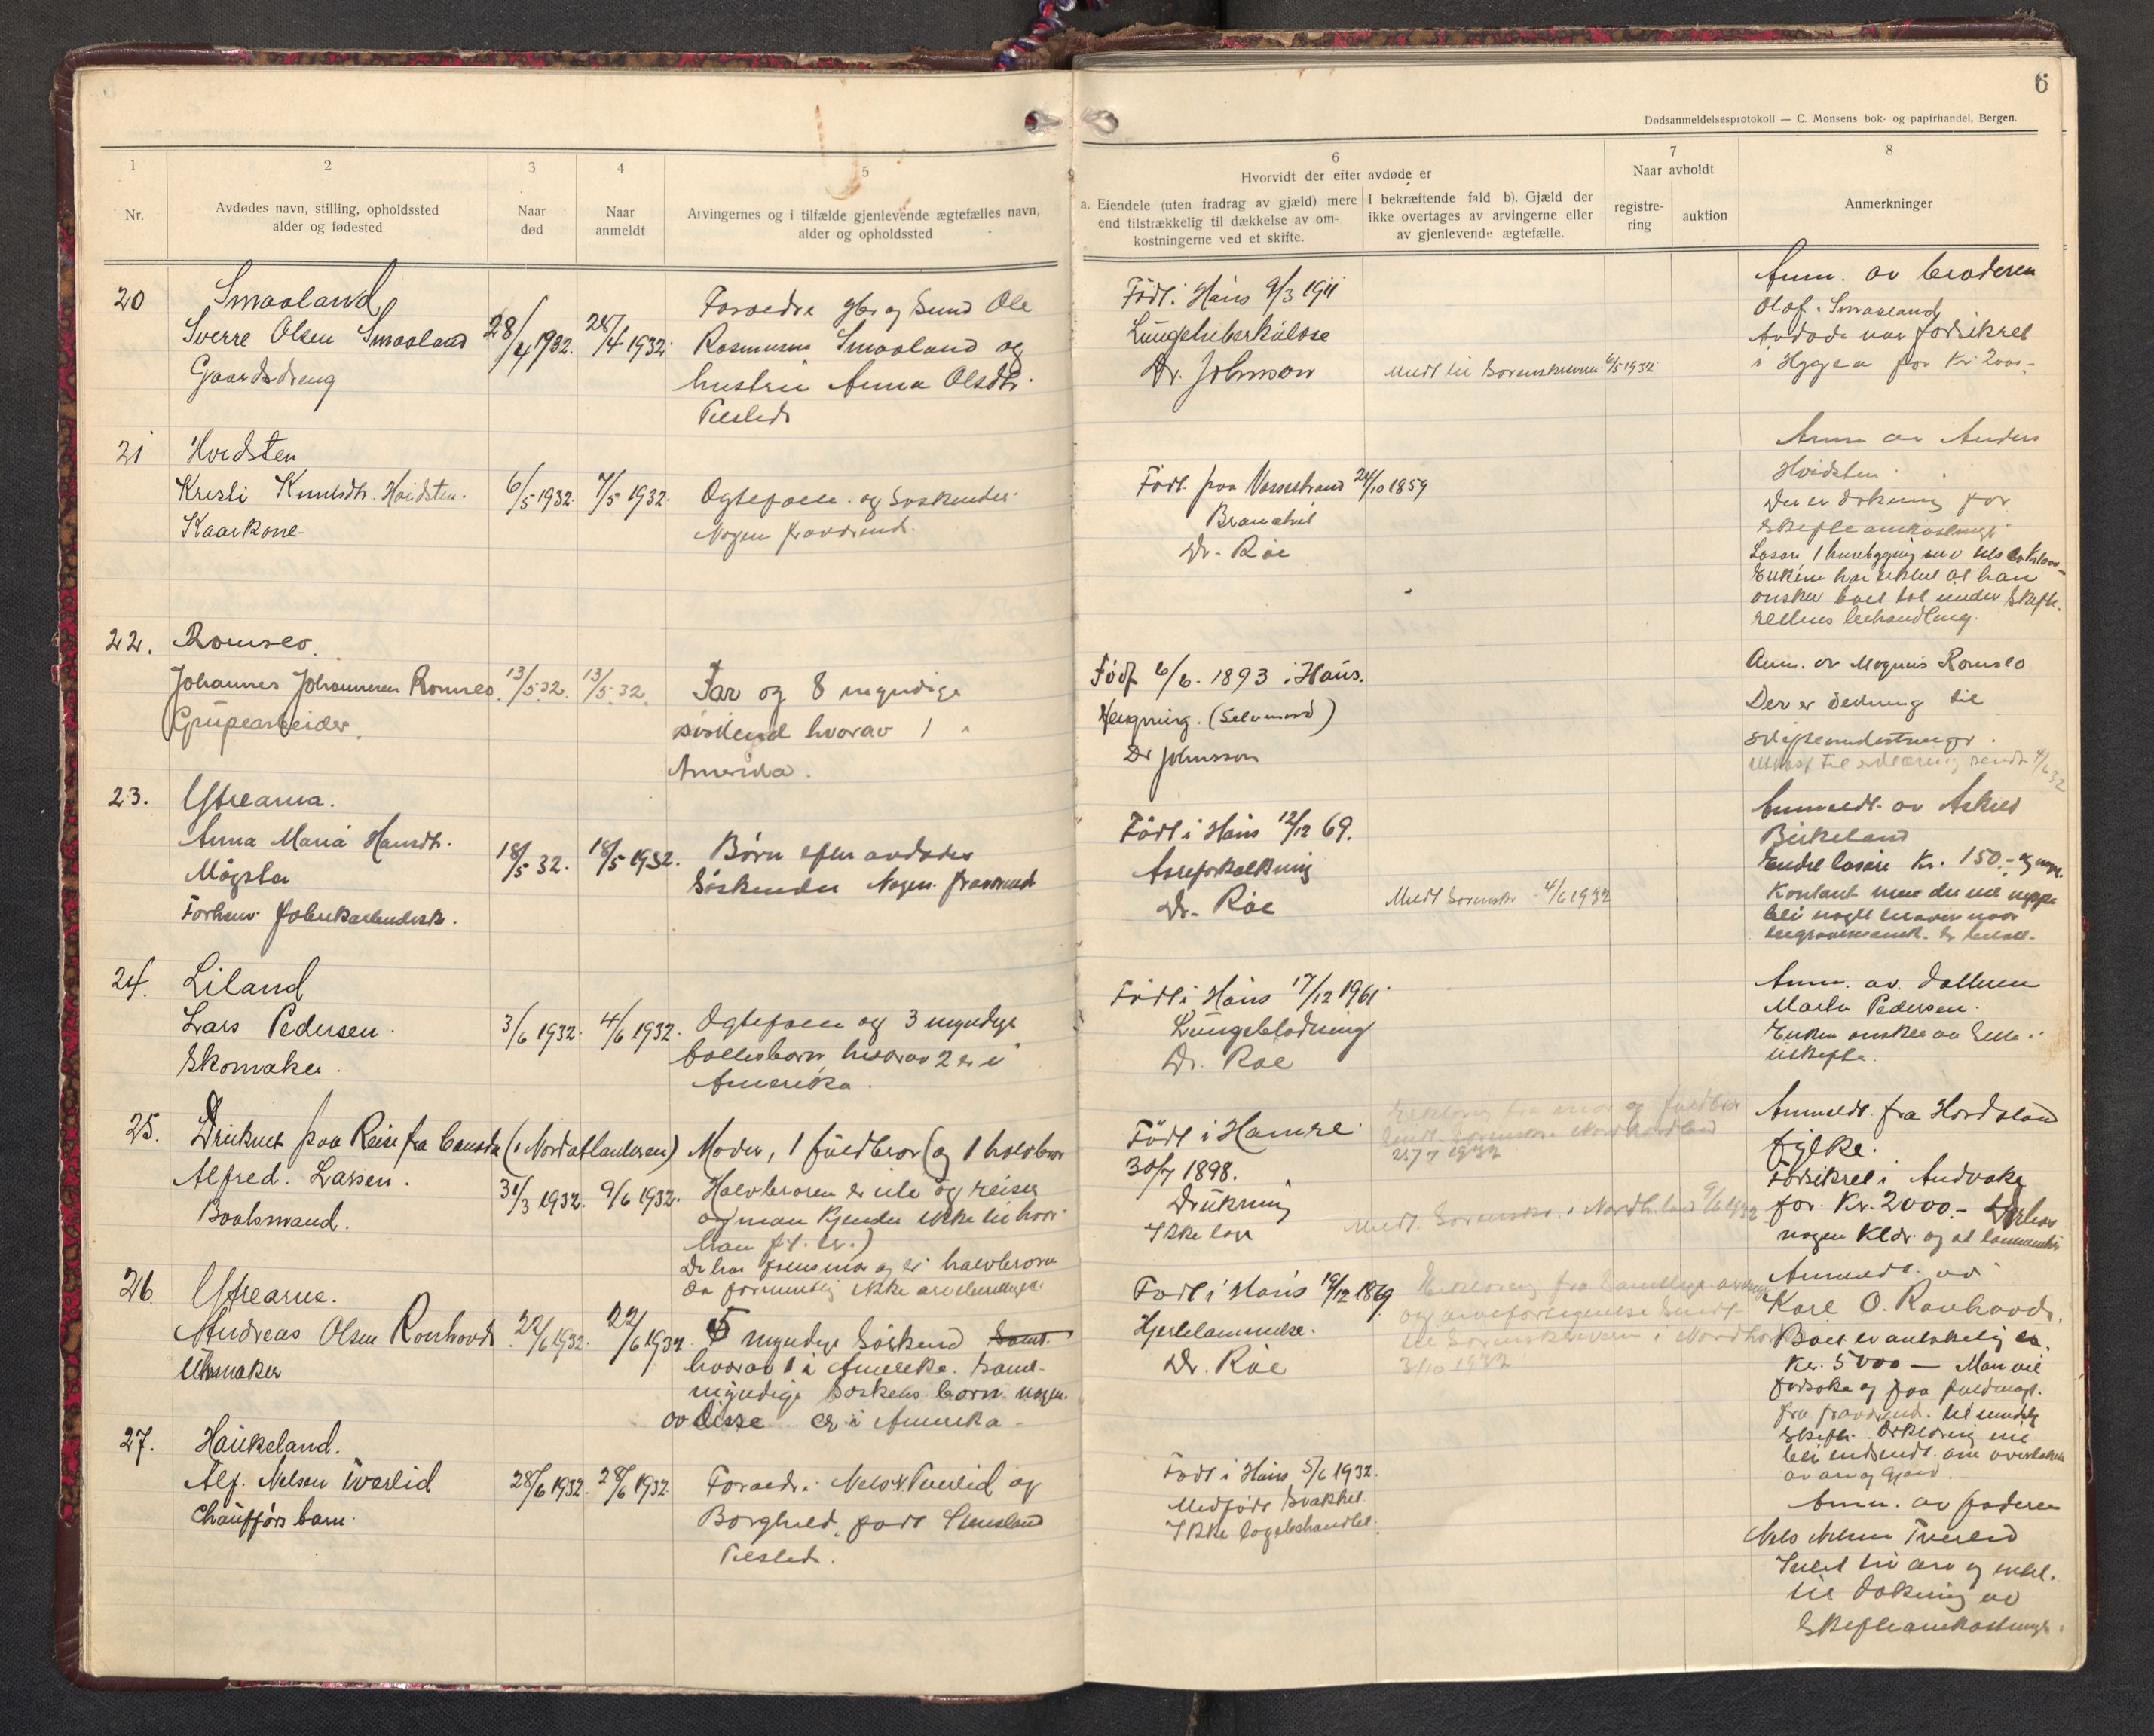 6
Dødsanmeldelsesprotokoll — C. Monsens bok- og papirhandel, Bergen.
1
2
3
4
5
6
7
8
Nr.
Avdødes navn, stilling, opholdssted
alder og fødested
Naar
død
Naar
anmeldt
Arvingernes og i tilfælde gjenlevende ægtefælles navn,
alder og opholdssted
Hvorvidt der efter avdøde er
a. Eiendele (uten fradrag av gjæld) mere
end tilstrækkelig til dækkelse av om-
kostningerne ved et skifte.
I bekræftende fald b). Gjæld der
ikke overtages av arvingerne eller
av gjenlevende ægtefælle.
Naar avholdt
registre-
ring
auktion
Anmerkninger
20
Smaaland
Sverre Olsen Smaaland
Gaardsdreng
28/4 1932.
28/4 1932.
Foraedre Gbr og Smed Ole
Rasmussen Smaaland og
hustru Anna Olsdtr.
Tilsteds
Födt i Haus 9/3 1911
Lungetuberkulose
Dr. Johnson
Meldt til Sorenskriveren 4/5 1932
Anm. av broderen
Olaf Smaaland
Avdøde var forsikret
i Hygea for Kr 2000.-
21
Hvidsten
Kristi Knutsdtr. Hvidsten.
Kaarkone
6/5 1932.
7/5 1932.
Ogtefaelle og Søskender.
Nogen fraværende.
Födt paa Vossestrand 24/10 1859
Dr. Röe
Anm av Anders
Hvidsten.
Der er dækning for
Skifteomkostninger
Enken har uttalt at han
ønsker boet tat under Skifte-
rettens behandling.
22.
Romslo.
Johannes Johannesen Romslo.
Grubearbeider.
13/5 32.
13/5 32.
Far og 8 myndige
søskend hvorav 1 i
Amerika.
Född 6/6. 1893 i Haus.
Hengning. (Selvmord)
Dr Johnsson
Anm. av Magnus Romslo
Der er dekning til
skifteomkostninger.
Utkast til erklæring sendt 4/6 32
23.
Ytrearna.
Anna Maria Hansdtr.
Mögster
Forhenv. fabrikarbeidersk.
18/5 32.
18/5 1932.
Børn efter avdødes
Søskender Nogen fraværende
Födt i Haus 12/12 69.
Aareforkalkning
Dr. Röe
Meldt Sorenskr. 4/6 1932
Anmeldt av Askild
Birkeland
Endel løsøre Kr. 150.- og noe
Kontant men der vil neppe
bli noget tilovers naar
begravelsesomk. er betalt.
24.
Liland
Lars Pedersen.
Skomaker.
3/6 1932.
4/6 1932.
Ogtefaelle og 3 myndige
fællesbarn hvorav 2 er i
Amerika.
Födt i Haus 17/12 1961
Lungeblødning
Dr. Röe
Anm. av datteren
Marta Pedersen.
Enken ønsker aa sitte i
uskifte.
25.
Druknet paa Reise fra Canada (i Nordatlanteren)
Alfred. Larsen.
Baatsmand.
31/3 1932.
9/6 1932.
Moder, 1 fuldbror (og 1 halvbror
Halvbroren er ute og reiser
og man kjender ikke til hvor
han f.t. er.)
De har felles mor og er halvbroren
da formentlig ikke arveberettiget.
Födt i Hamre.
30/7 1898.
Drukning
Ikke lege
Erklæring fra mor og fuldbror
sendt Sorenskr. i Nordhordland
25/7 1932
Meldt Sorenskr. i Nordh.land 9/6 1932
Anmeldt fra Hordaland
fylke.
Forsikret i Andvake
for Kr. 2000.-
26.
Ytrearna.
Andreas Olsen Ronhovde
Uhrmaker
22/6 1932.
22/6 1932.
5 myndige Søskend Samt
hvorav 1 i Amerika. Samt
myndige Søskens børn nogen
av disse er i Amerika
Födt i Haus 19/12 1869
Hjertelammelse.
Dr. Röe
Erklæring fra samtlige arvinger
og arvefortegnelse sendt
til Sorenskriveren i Nordhordl.
3/10 1932
Anmeldt av
Karl O. Ronhovde.
Boet er antakelig ca.
Kr. 5000 — Man vil
forsøke og faa fuldmagt
fra fraværende til mindelig
Skifte. Erklæring vil
bli indsendt om overtakelse
av arv og Gjæld.
27.
Haukeland.
Alf. Nelson Tverlid
Chaufførs barn.
28/6 1932.
28/6 1932.
Foraedre: Nels N. Tverlid og
Borghild, født Stensland
Tilsteds.
Födt i Haus 5/6 1932.
Medfödt Svakhet
Ikke lægebehandlet.
Anm. av faderen
Nels Nelsen Tverlid
Intet til arv og intet
til dækning av
Skifteomkostninger.